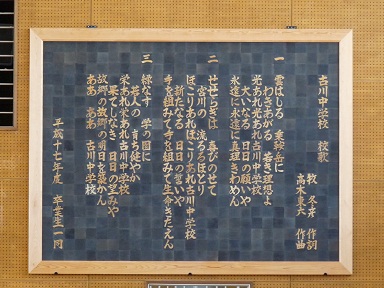 古川中学校 校歌
牧 冬彦 作詞
高木東六 作曲
一 雲はしる 乗鞍岳に
わきあがる 若き理想よ
光あれ光あれ古川中学校
大いなる 日日の願いや
永遠に永遠に真理きわめん
二 せせらぎは 喜びのせて
宮川の 流るるほとり
ほこりあれほこりあれ古川中学校
新たなる 日日の誓いや
手を組みて手を組みて生命きたえん
三 緑なす 学の園に
若人の 育ち健やか
栄あれ栄あれ古川中学校
果てしなき 日日の望みや
故郷の故郷の明日を築かん
ああ ああ 古川中学校
平成十七年度 卒業生一同